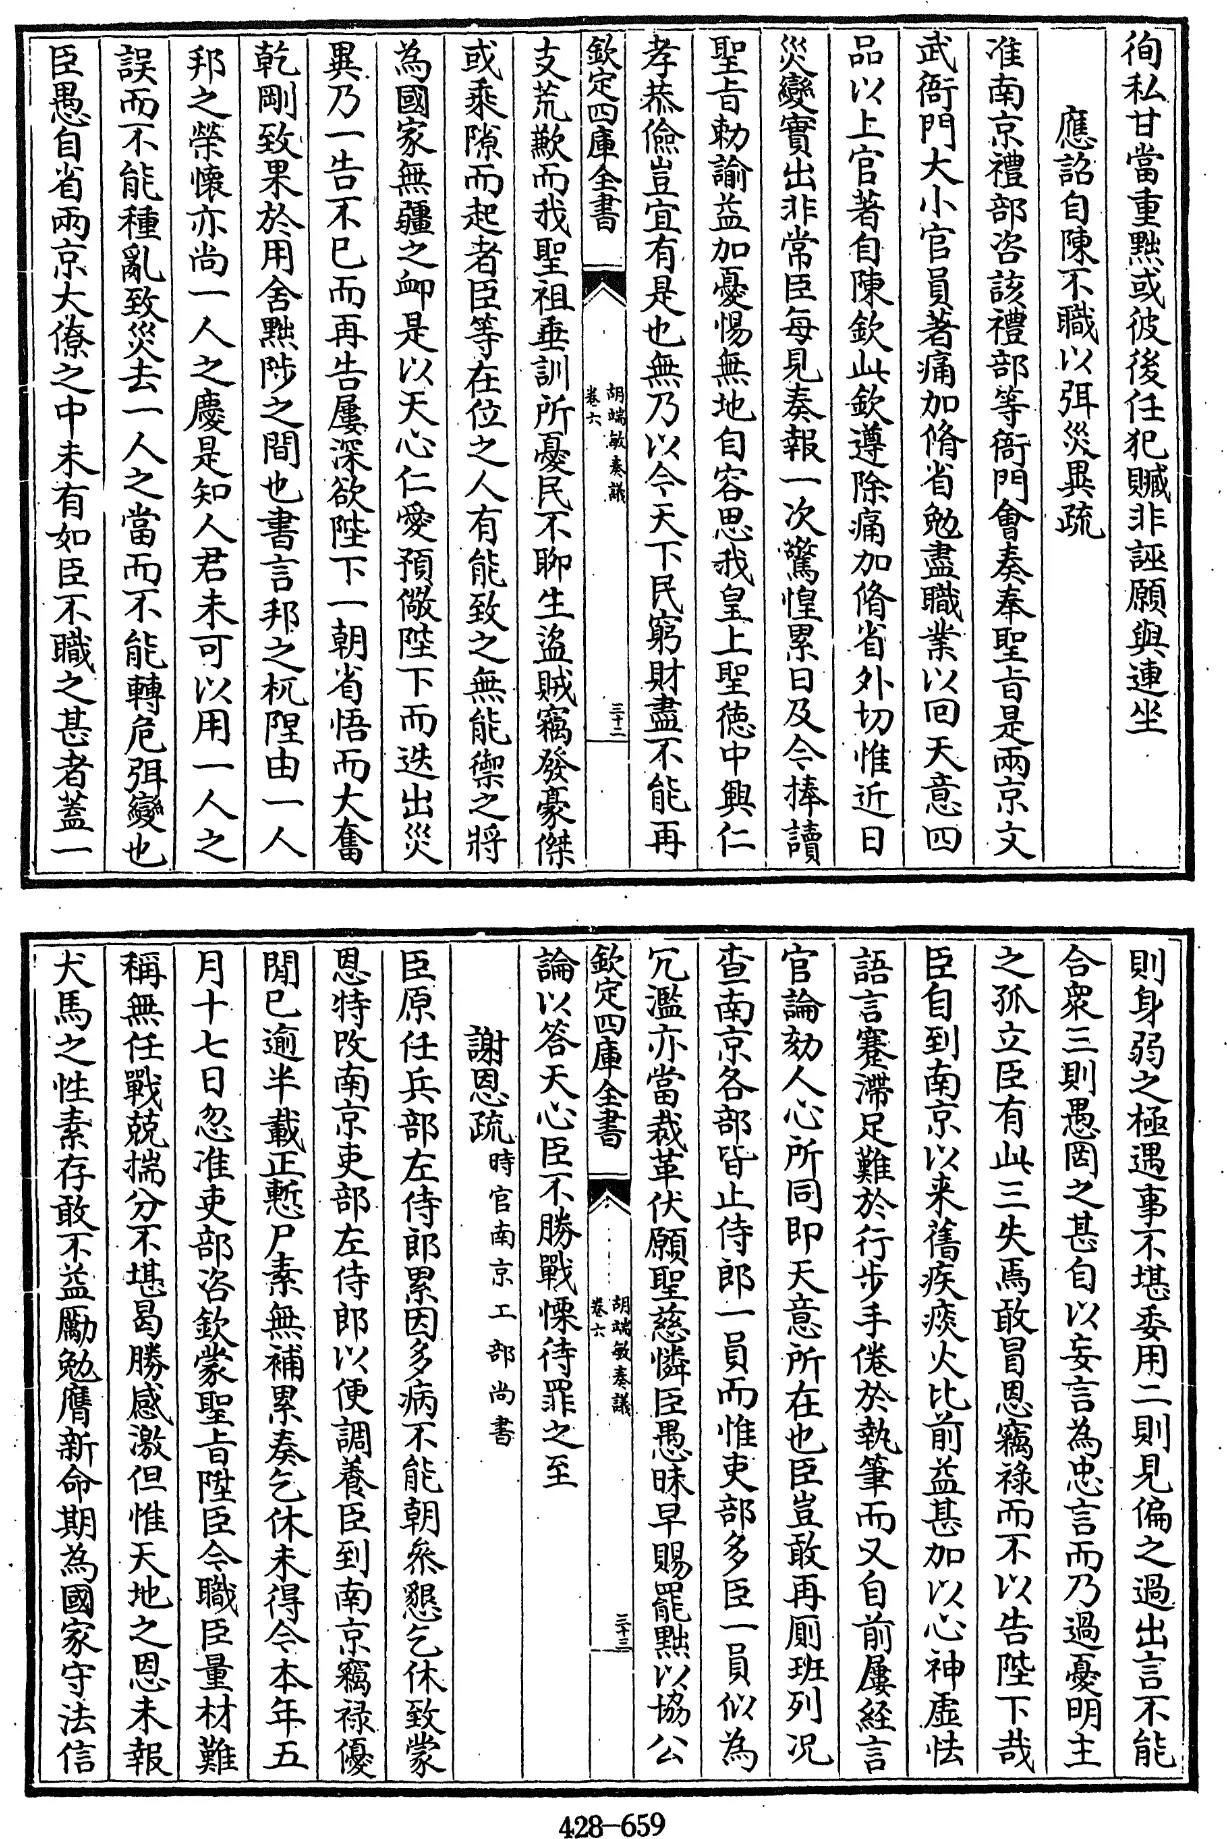 徇私甘當重黜或彼後任犯贓非誣願與連坐
應詔自陳不職以弭災異疏
准南京禮部咨該禮部等衙門會奏奉聖旨是兩京文
武衙門大小官員著痛加脩省勉盡職業以回天意四
品以上官著自陳欽此欽遵除痛加脩省外切惟近日
災變實出非常臣每見奏報一次驚惶累日及今捧讀
聖旨勅諭益加憂惕無地自容思我皇上聖徳中興仁
孝恭儉豈宜有是也無乃以今天下民窮財盡不能再
欽定四庫全書
胡端敏奏議
卷六
三十二
支荒歉而我聖祖垂訓所憂民不聊生盜賊竊發豪傑
或乘隙而起者臣等在位之人有能致之無能禦之將
為國家無疆之衂是以天心仁愛預儆陛下而迭出災
異乃一告不已而再告屢深欲陛下一朝省悟而大奮
乾剛致果於用舍黜陟之間也書言邦之杌隉由一人
邦之榮懷亦尚一人之慶是知人君未可以用一人之
誤而不能種亂致災去一人之當而不能轉危弭變也
臣愚自省兩京大僚之中未有如臣不職之甚者蓋一
則身弱之極遇事不堪委用二則見偏之過出言不能
合衆三則愚罔之甚自以妄言為忠言而乃過憂明主
之孤立臣有此三失焉敢冒恩竊禄而不以告陛下哉
臣自到南京以來舊疾痰火比前益甚加以心神虛怯
語言蹇滯足難於行步手倦於執筆而又自前屢經言
官論劾人心所同即天意所在也臣豈敢再厠班列况
查南京各部皆止侍郎一員而惟吏部多臣一員似為
冗濫亦當裁革伏願聖慈憐臣愚昧早賜罷黜以協公
欽定四庫全書
胡端敏奏議
卷六
三十三
論以答天心臣不勝戰慄待罪之至
謝恩疏時官南京工部尚書
臣原任兵部左侍郎累因多病不能朝叅懇乞休致蒙
恩特改南京吏部左侍郎以便調養臣到南京竊禄優
閒已逾半載正慙尸素無補累奏乞休未得今本年五
月十七日忽准吏部咨欽蒙聖旨陞臣今職臣量材難
稱無任戰兢揣分不堪曷勝感激但惟天地之恩未報
犬馬之性素存敢不益勵勉膺新命期為國家守法信
428-659